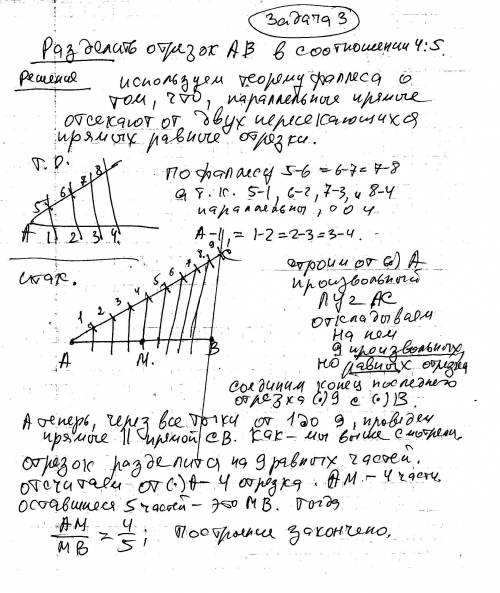 Задача 3
Разделить отрезок АВ в соотношении 4:5.
Решение
используем теорему фаллеса о
том, что, параллельные прямые
отсекают от двух пересекающихся
прямых равные отрезки.
Т. О.
5 6 7 8
А 1 2 3 4
По фаллесу 5-6=6-7=7-8
а т.к. 5-1, 6-2, 7-3, и 8-4
параллельны, то и
А-1=1-2=2-3=3-4.
итак.
1 2 3 4 5 6 7 8 9 С
А М. В
строим от (·) А
произвольный
луч АС
откладываем
на нем
9 произвольных
но равных отрезка
соединим конец последнего
отрезка (·) 9 с (·) В.
А теперь, через все точки от 1 до 9, проведем
прямые || прямой СВ. Как мы выше смотрели,
отрезок разделится на 9 равных частей.
отсчитаем от (·) А- 4 отрезка. АМ - 4 части.
оставшиеся 5 частей - это МВ. Тогда
АМ/МВ = 4/5; Построение закончено.